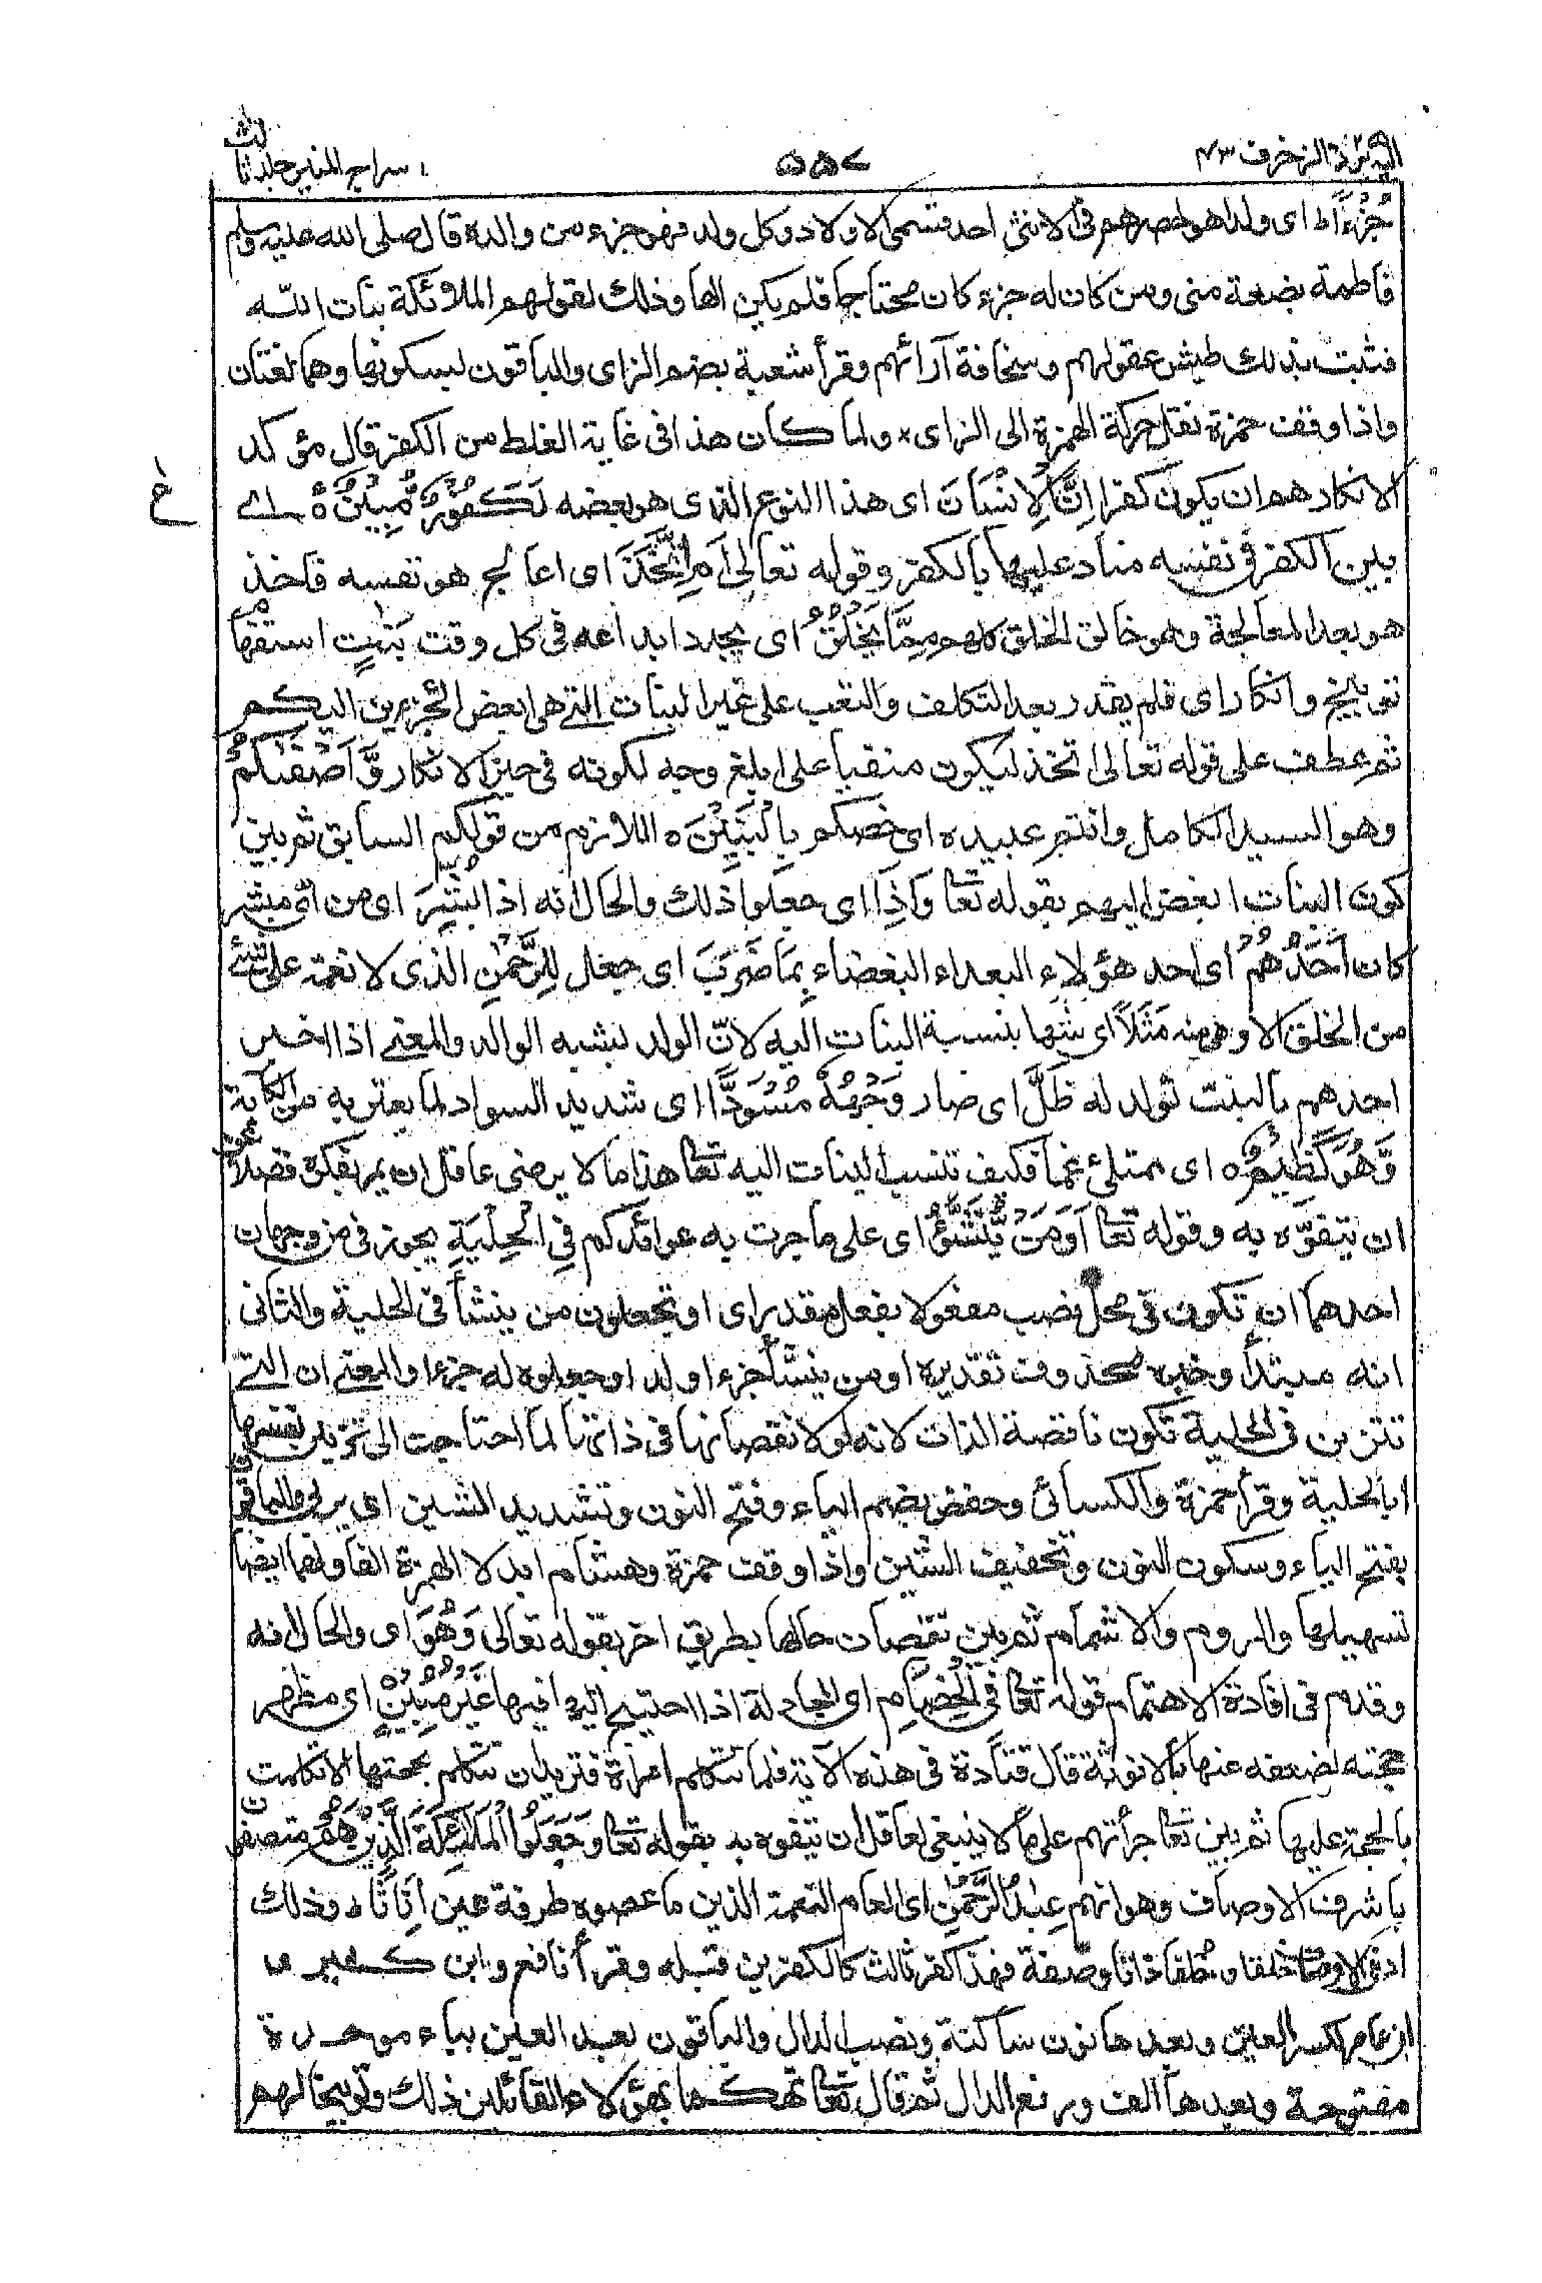 اليه يرد ٢٥ الزخرف ٤٣
٥٥٧
سراج المنير جلد ثالث
جُزْءًا ط اى ولدا هو لحصرهم فى الانثى احد قسمى الاولاد وكل ولد فهو جزء من والده قال صلى الله عليه وسلم
فاطمة بضعة منى ومن كان له جزء كان محتاجا فلم يكن الها وذلك لقولهم الملائكة بنات الله
فثبت بذلك طيش عقولهم وسخافة آرائهم وقرأ شعبة بضم الزاى والباقون بسكونها وهما لغتان
واذا وقف حمزة نقل حركة الهمزة الى الزاى × ولما كان هذا فى غاية الغلظ من الكفر قال مؤكد
لانكارهم ان يكون كفرا اِنَّ الْاِنْسَانَ اى هذا النوع الذى هو بعضه لَكَفُوْرٌ مُّبِيْنٌ ہ اے
بين الكفر فى نفسه مناد عليها بالكفر وقوله تعالى اَمِ اتَّخَذَ اى اعالج هو نفسه فاخذ
هو بعد المعالجة وهو خالق الخلق كلهم مِمَّا يَخْلُقُ اى يجدد ابداعه فى كل وقت بَنٰتٍ استفها
م توبيخ وانكار اى فلم يقدر بعد التكلف والتعب على غير البنات التے هى ابغض الجزئين اليكم
ثم عطف على قوله تعالى اتخذ ليكون منفيا على ابلغ وجه لكونه فى حيز الانكار وَّاَصْفٰىكُمْ
وهو السيد الكامل وانتم عبيده اى خصكم بِالْبَنِيْنَ ہ اللازم من قولكم السابق ثم بين
كون البنات ابغض اليهم بقوله تعا وَاِذَا اى جعلوا ذلك والحال انه اذا بُشِّرَ اى من اى مبشر
كان اَحَدُهُمْ اى احد هؤلاء البعداء البغضاء بِمَا ضَرَبَ اى جعل لِلرَّحْمٰنِ الذى لا نعمة على شئے
من الخلق الا وهى منه مَثَلًا اى شبها بنسبة البنات اليه لانّ الولد يشبه الوالد والمعنے اذا اخبر
احدهم بالبنت تولد له ظَلَّ اى صار وَجْهُهٗ مُسْوَدًّا اى شديد السواد لما يعتريه من الكآبة
وَّهُوَ كَظِيْمٌ ہ اى ممتلئ غما فكيف تنسب البنات اليه تعا هذا ما لا يرضى عاقل ان يمر بفكره فضلا عن
ان يتفوّه به وقوله تعا اَوَمَنْ يُّنَشَّؤُا اى على ما جرت به عوائدكم فِى الْحِلْيَةِ يجوز فى من وجهان
احدهما ان تكون فى محل نصب مفعولا بفعل مقدر اى او تجعلون من ينشأ فى الحلية والثانى
انه مبتدأ وخبره محذوف تقديره او من ينشأ جزء او ولد او جعلوه له جزءا والمعنے ان التے
تتزين فى الحلية تكون ناقصة الذات لانه لولا نقصانها فى ذاتها لما احتاجت الى تزيين نفسها
بالحلية وقرأ حمزة والكسائى وحفص بضم الياء وفتح النون وتشديد الشين اى يربى والباقون
بفتح الياء وسكون النون وتخفيف الشين واذا وقف حمزة وهشام ابدلا الهمزة الفا ولهما ايضا
تسهيلها والروم والاشمام ثم بين نقصان حالها بطريق اخر بقوله تعالى وَهُوَ اى والحال انه
وقدم فى افادة الاهتمام قوله تعا فِى الْخِصَامِ اى المجادلة اذا احتيج اليه فيها غَيْرُ مُبِيْنٍ اى مظهر
حجته لضعفه عنها بالانوثة قال قتادة فى هذه الآية فلما تتكلم امرأة فتريد ان تتكلم بحجتها الا تكلمت
بالحجة عليها ثم بين تعا جرأتهم على ما لا ينبغى لعاقل ان يتفوه به بقوله تعا وَجَعَلُوا الْمَلٰٓئِكَةَ الَّذِيْنَ هُمْ متصفون
باشرف الاوصاف وهو انهم عِبٰدُ الرَّحْمٰنِ اى العام النعمة الذين ما عصوه طرفة عين اِنَاثًا ط وذلك
ادنى الاوصاف خلقا وخُلقا ذاتا وصفة فهذا كفر ثالث كالكفرين قبله وقرأ نافع وابن كثير و
ابن عامر بكسر العين وبعدها نون ساكنة ونصب الدال والباقون بعد العين بباء موحدة
مفتوحة وبعدها الف ورفع الدال ثم قال تعا تهكما بهؤلاء القائلين ذلك وتوبيخا لهم